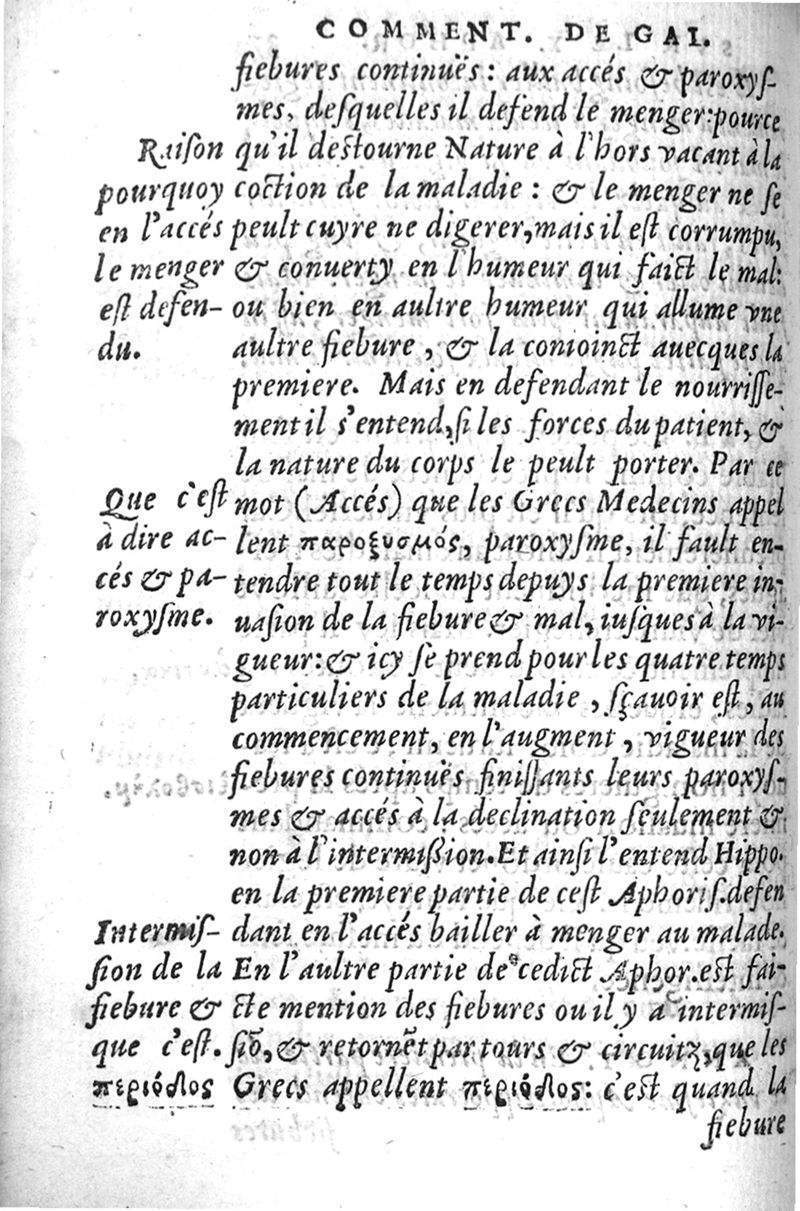 COMMENT. DE GAL.
fiebures continuës : aux accés & paroxyſ-
mes, deſquelles il defend le menger: pource
Raiſon
pourquoy
en l'accés
le menger
eſt defen-
du.
qu'il deſtourne Nature à l'hors vacant à la
coction de la maladie : & le menger ne ſe
peult cuyre ne digerer, mais il eſt corrumpu,
& conuerty en l'humeur qui faict le mal:
ou bien en aultre humeur qui allume vne
aultre fiebure , & la conioinct auecques la
premiere. Mais en defendant le nourriſſe-
ment il s'entend, ſi les forces du patient, &
la nature du corps le peult porter. Par ce
Que c'eſt
à dire ac-
cés & pa-
roxyſme.
mot (Accés) que les Grecs Medecins appel
lent παροξυσμός, paroxyſme, il fault en-
tendre tout le temps depuys la premiere in-
uaſion de la fiebure & mal, iuſques à la vi-
gueur: & icy ſe prend pour les quatre temps
particuliers de la maladie , ſçauoir eſt , au
commencement, en l'augment , vigueur des
fiebures continuës finiſſants leurs paroxyſ-
mes & accés à la declination ſeulement &
non à l'intermiſſion. Et ainſi l'entend Hippo.
en la premiere partie de ceſt Aphoriſ. defen
Intermiſ-
ſion de la
fiebure &
que c'eſt.
περιόδος
dant en l'accés bailler à menger au malade.
En l'aultre partie de cedict Aphor. eſt fai-
cte mention des fiebures ou il y a intermiſ-
ſiō, & retornēt par tours & circuitz, que les
Grecs appellent περιόδος: c'eſt quand la
fiebure